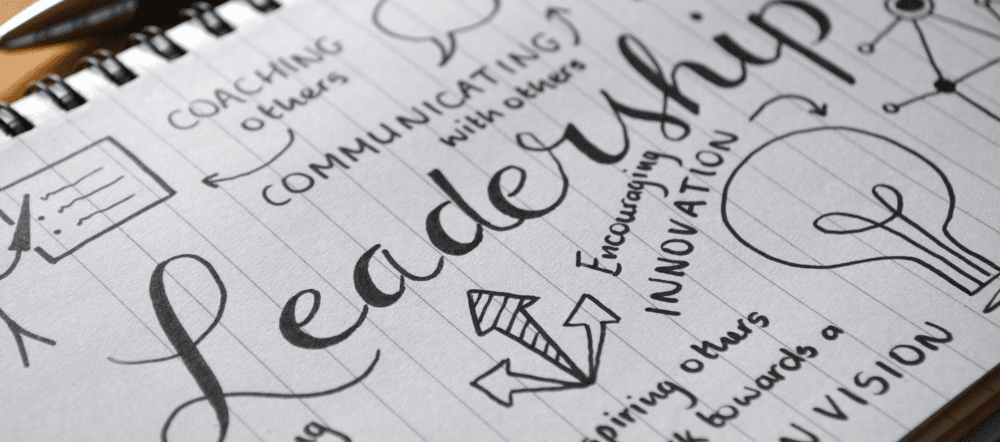 COACHING
others
COMMUNICATING
with others
Leadership
Encouraging
INNOVATION
others
towards a
VISION